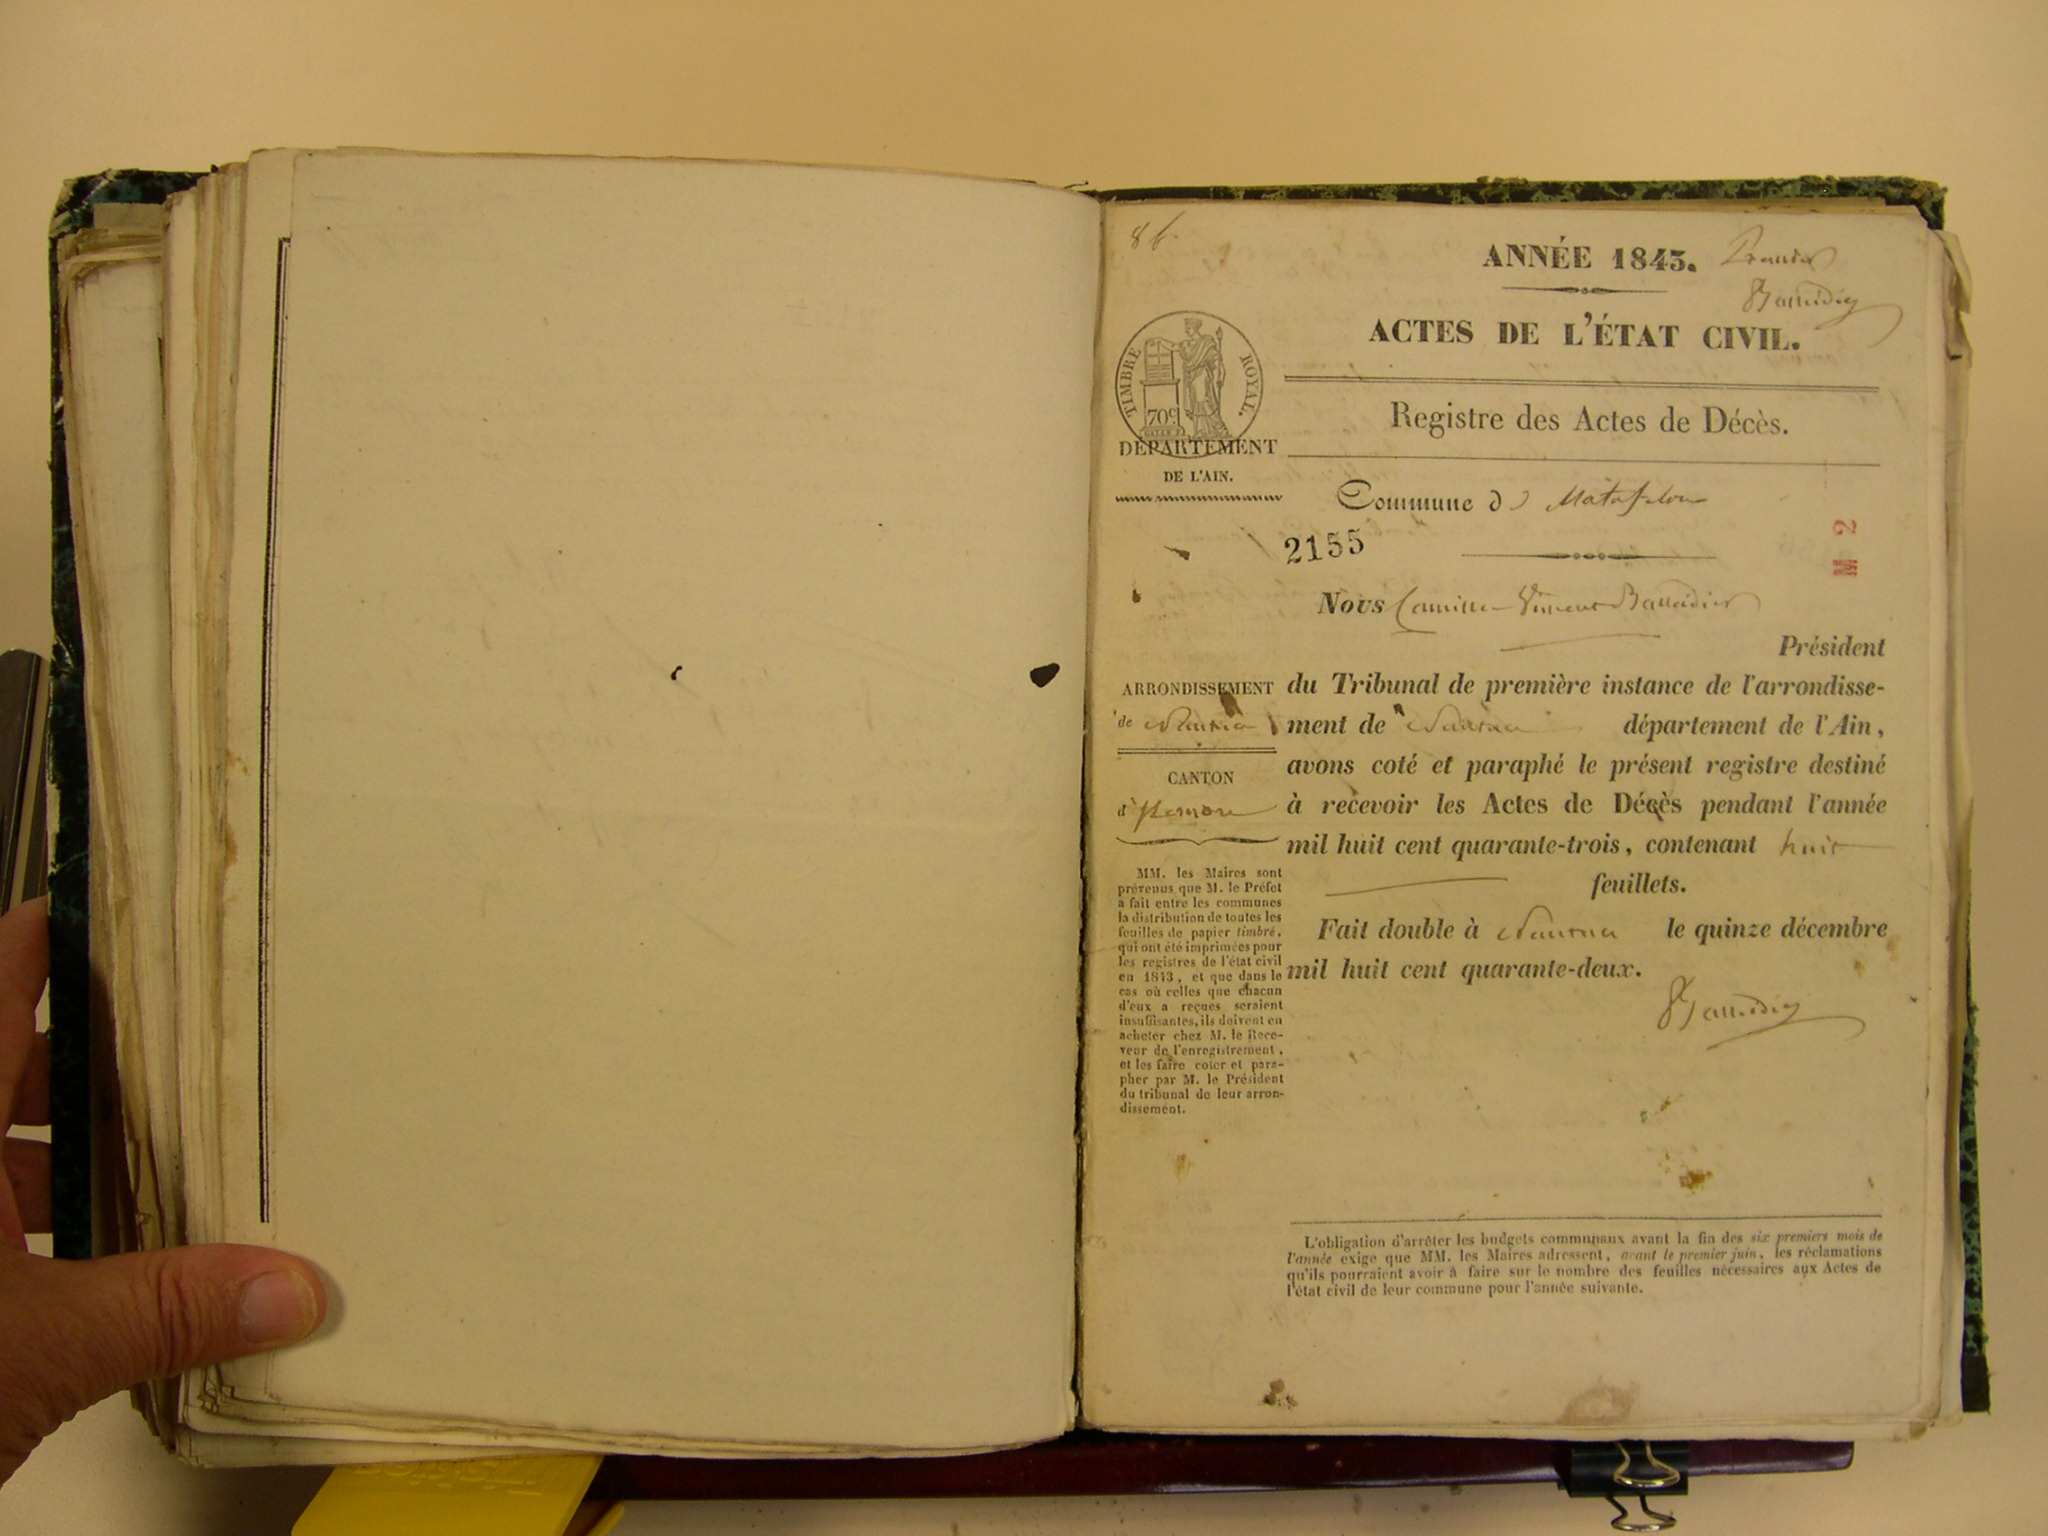 86.
ANNÉE 1843. Premier
Balleidier
ACTES DE L'ÉTAT CIVIL.
TIMBRE ROYAL.
70c
Registre des Actes de Décès.
DÉPARTEMENT
DE L'AIN.
Commune de Matafelon
2155
M 2
Nous Camille Vincent Balleidier
Président
ARRONDISSEMENT
de Nantua
CANTON
d'Izernore
MM. les Maires sont
prévenus que M. le Préfet
a fait entre les communes
la distribution de toutes les
feuilles de papier timbré,
qui ont été imprimées pour
les registres de l'état civil
en 1843, et que dans le
cas où celles que chacun
d'eux a reçues seraient
insuffisantes, ils doivent en
acheter chez M. le Rece-
veur de l'enregistrement,
et les faire coter et para-
pher par M. le Président
du tribunal de leur arron-
dissement.
du Tribunal de première instance de l'arrondisse-
ment de Nantua département de l'Ain,
avons coté et paraphé le présent registre destiné
à recevoir les Actes de Décès pendant l'année
mil huit cent quarante-trois, contenant huit
feuillets.
Fait double à Nantua le quinze décembre
mil huit cent quarante-deux.
Balleidier
L'obligation d'arrêter les budgets communaux avant la fin des six premiers mois de
l'année exige que MM. les Maires adressent, avant le premier juin, les réclamations
qu'ils pourraient avoir à faire sur le nombre des feuilles nécessaires aux Actes de
l'état civil de leur commune pour l'année suivante.